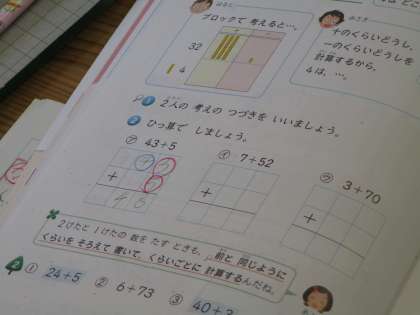 ブロックで 考えると…。
32
4
十のくらいどうし、
一のくらいどうしを
計算するから、
4は、…。
1 2人の 考えの つづきを いいましょう。
2 ひっ算で しましょう。
㋐ 43+5
㋑ 7+52
㋒ 3+70
+
+
+
2けたと 1けたの 数を たす ときも、前と 同じように
くらいを そろえて 書いて、くらいごとに 計算するんだね。
2 ① 24+5 ② 6+73 ③ 40+